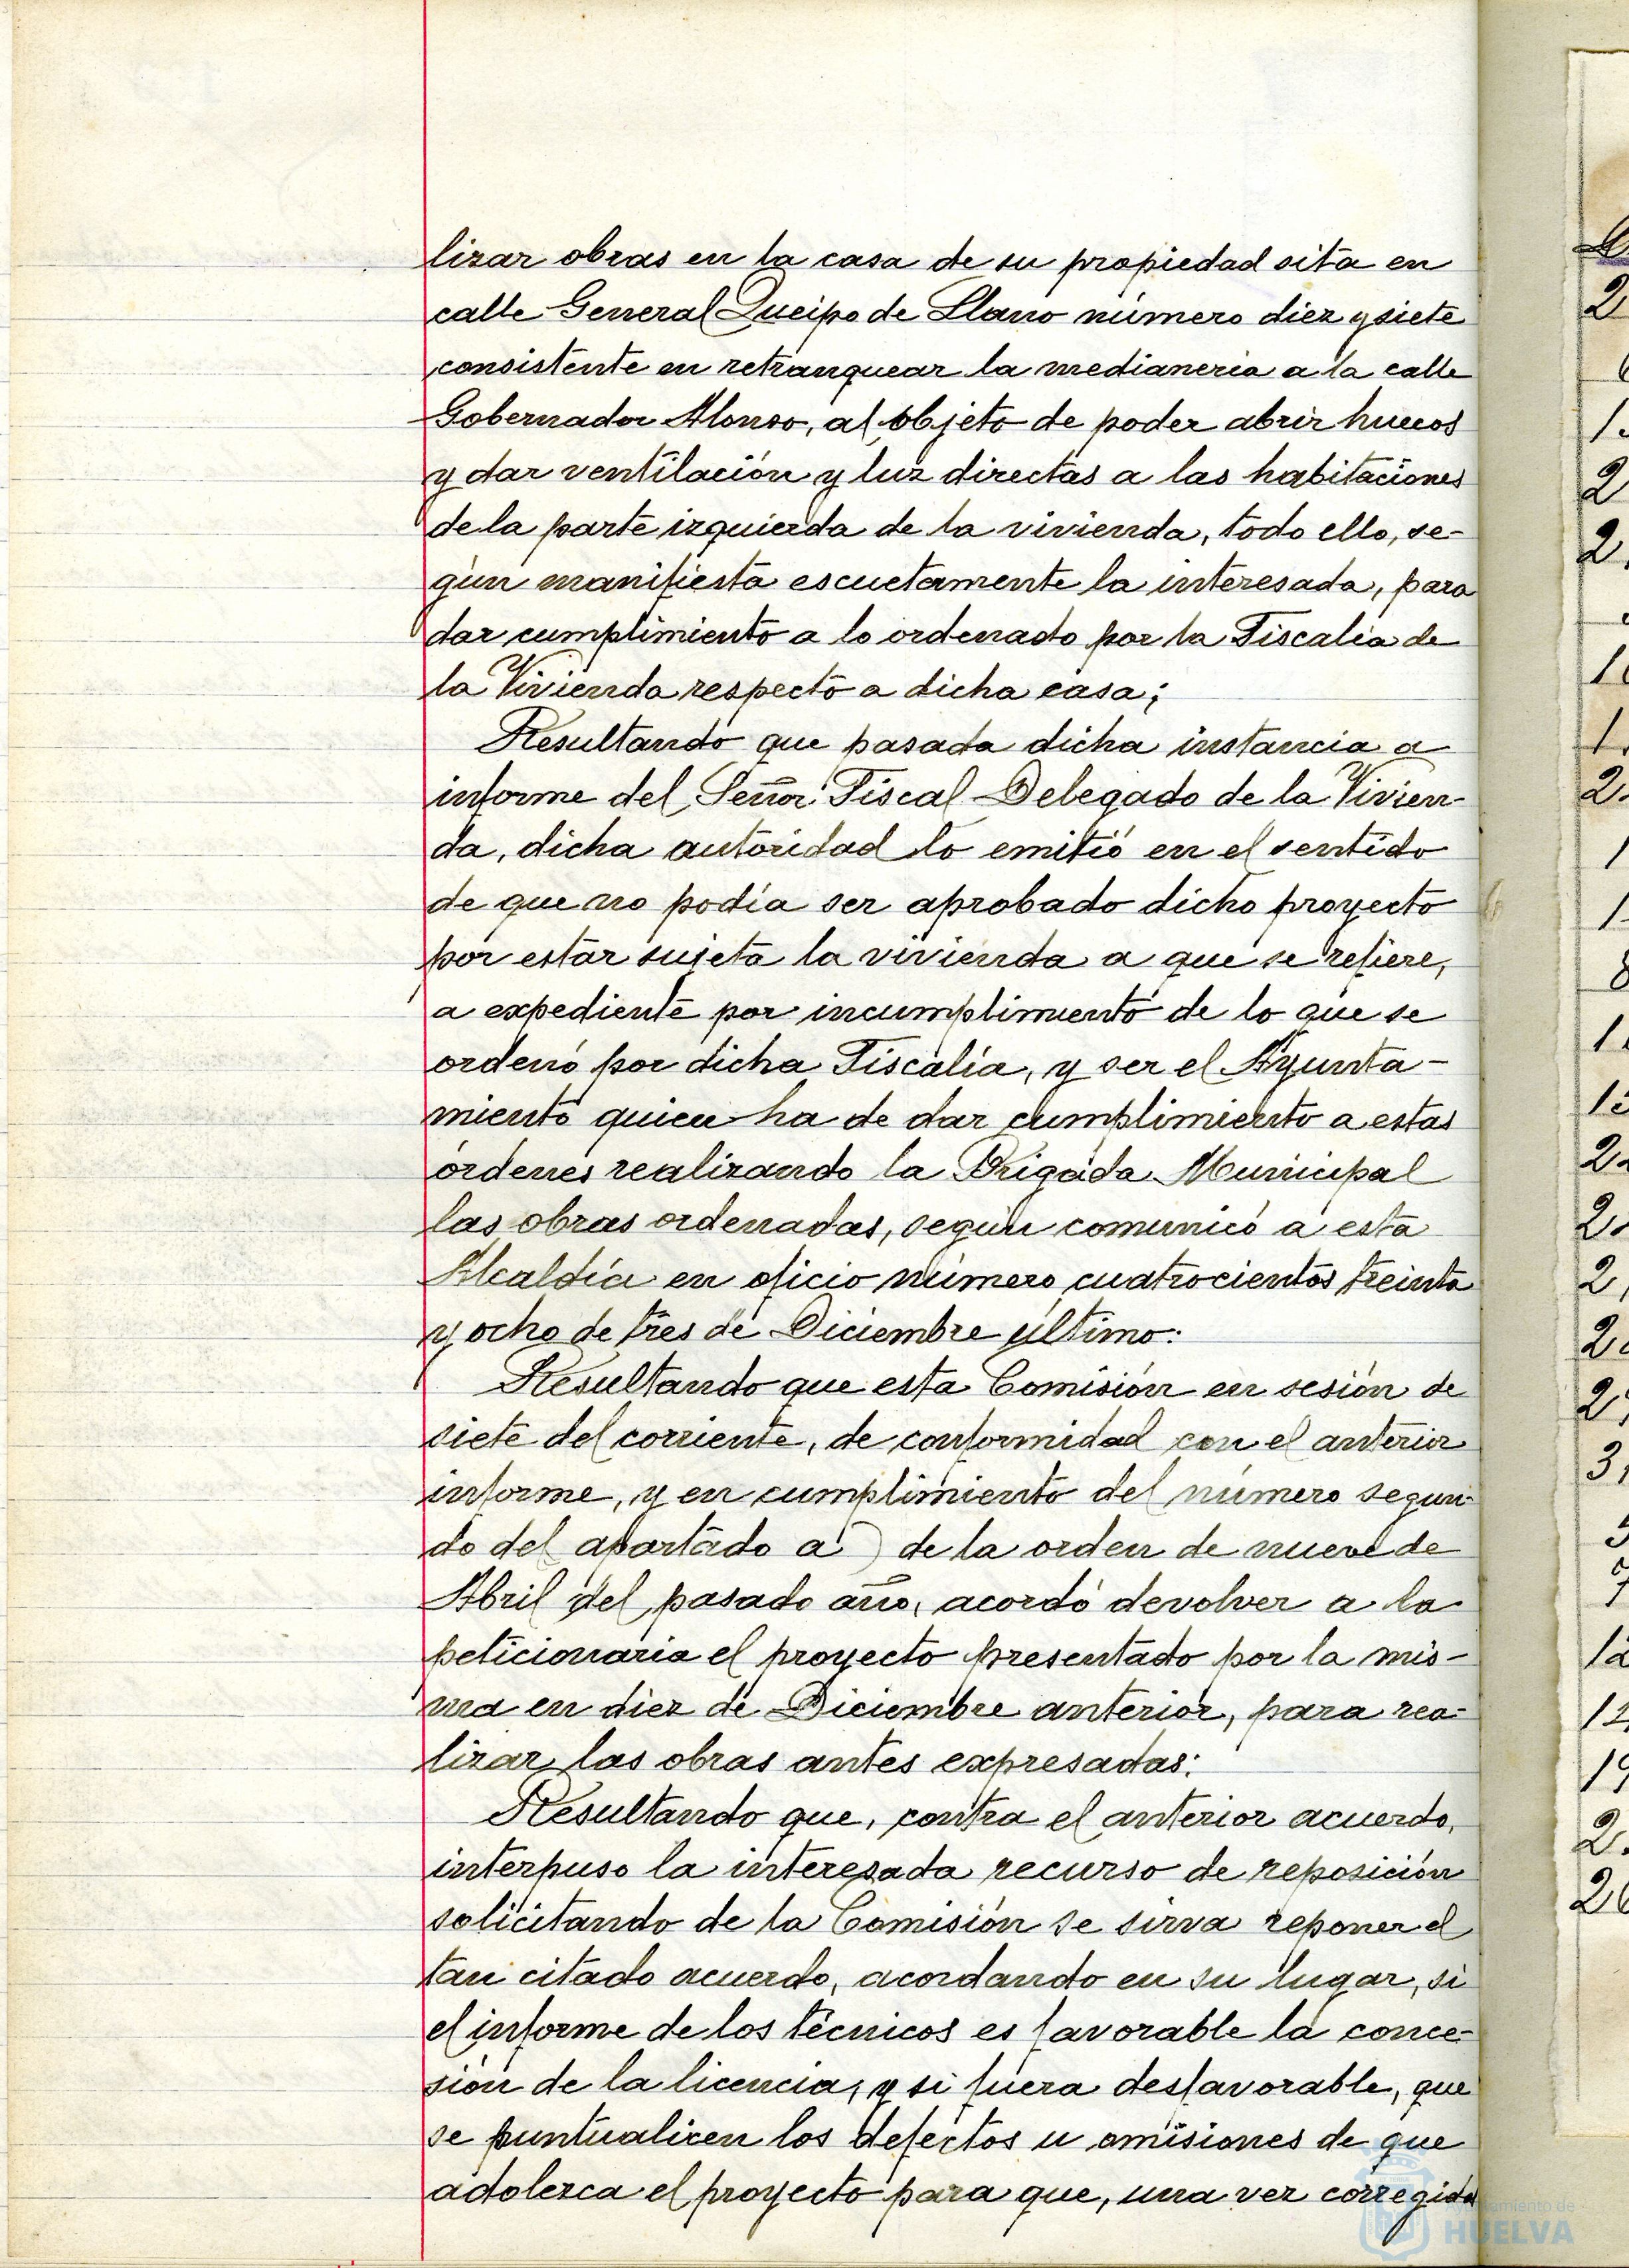 lizar obras en la casa de su propiedad sita en
calle General Queipo de Llano número diez y siete
consistente en retranquear la medianería a la calle
Gobernador Alonso, al objeto de poder abrir huecos
y dar ventilación y luz directas a las habitaciones
de la parte izquierda de la vivienda, todo ello, se-
gún manifiesta escuetamente la interesada, para
dar cumplimiento a lo ordenado por la Fiscalía de
la Vivienda respecto a dicha casa;
Resultando que pasada dicha instancia a
informe del Señor Fiscal Delegado de la Vivien-
da, dicha autoridad lo emitió en el sentido
de que no podía ser aprobado dicho proyecto
por estar sujeta la vivienda a que se refiere,
a expediente por incumplimiento de lo que se
ordenó por dicha Fiscalía, y ser el Ayunta-
miento quien ha de dar cumplimiento a estas
órdenes realizando la Brigada Municipal
las obras ordenadas, según comunicó a esta
Alcaldía en oficio número cuatrocientos treinta
y ocho de tres de Diciembre último:
Resultando que esta Comisión en sesión de
siete del corriente, de conformidad con el anterior
informe, y en cumplimiento del número segun-
do del apartado a) de la orden de nueve de
Abril del pasado año, acordó devolver a la
peticionaria el proyecto presentado por la mis-
ma en diez de Diciembre anterior, para rea-
lizar las obras antes expresadas:
Resultando que, contra el anterior acuerdo,
interpuso la interesada recurso de reposición
solicitando de la Comisión se sirva reponer el
tan citado acuerdo, acordando en su lugar, si
el informe de los técnicos es favorable la conce-
sión de la licencia, y si fuera desfavorable, que
se puntualicen los defectos u omisiones de que
adolezca el proyecto para que, una vez corregida
Ayuntamiento de
HUELVA